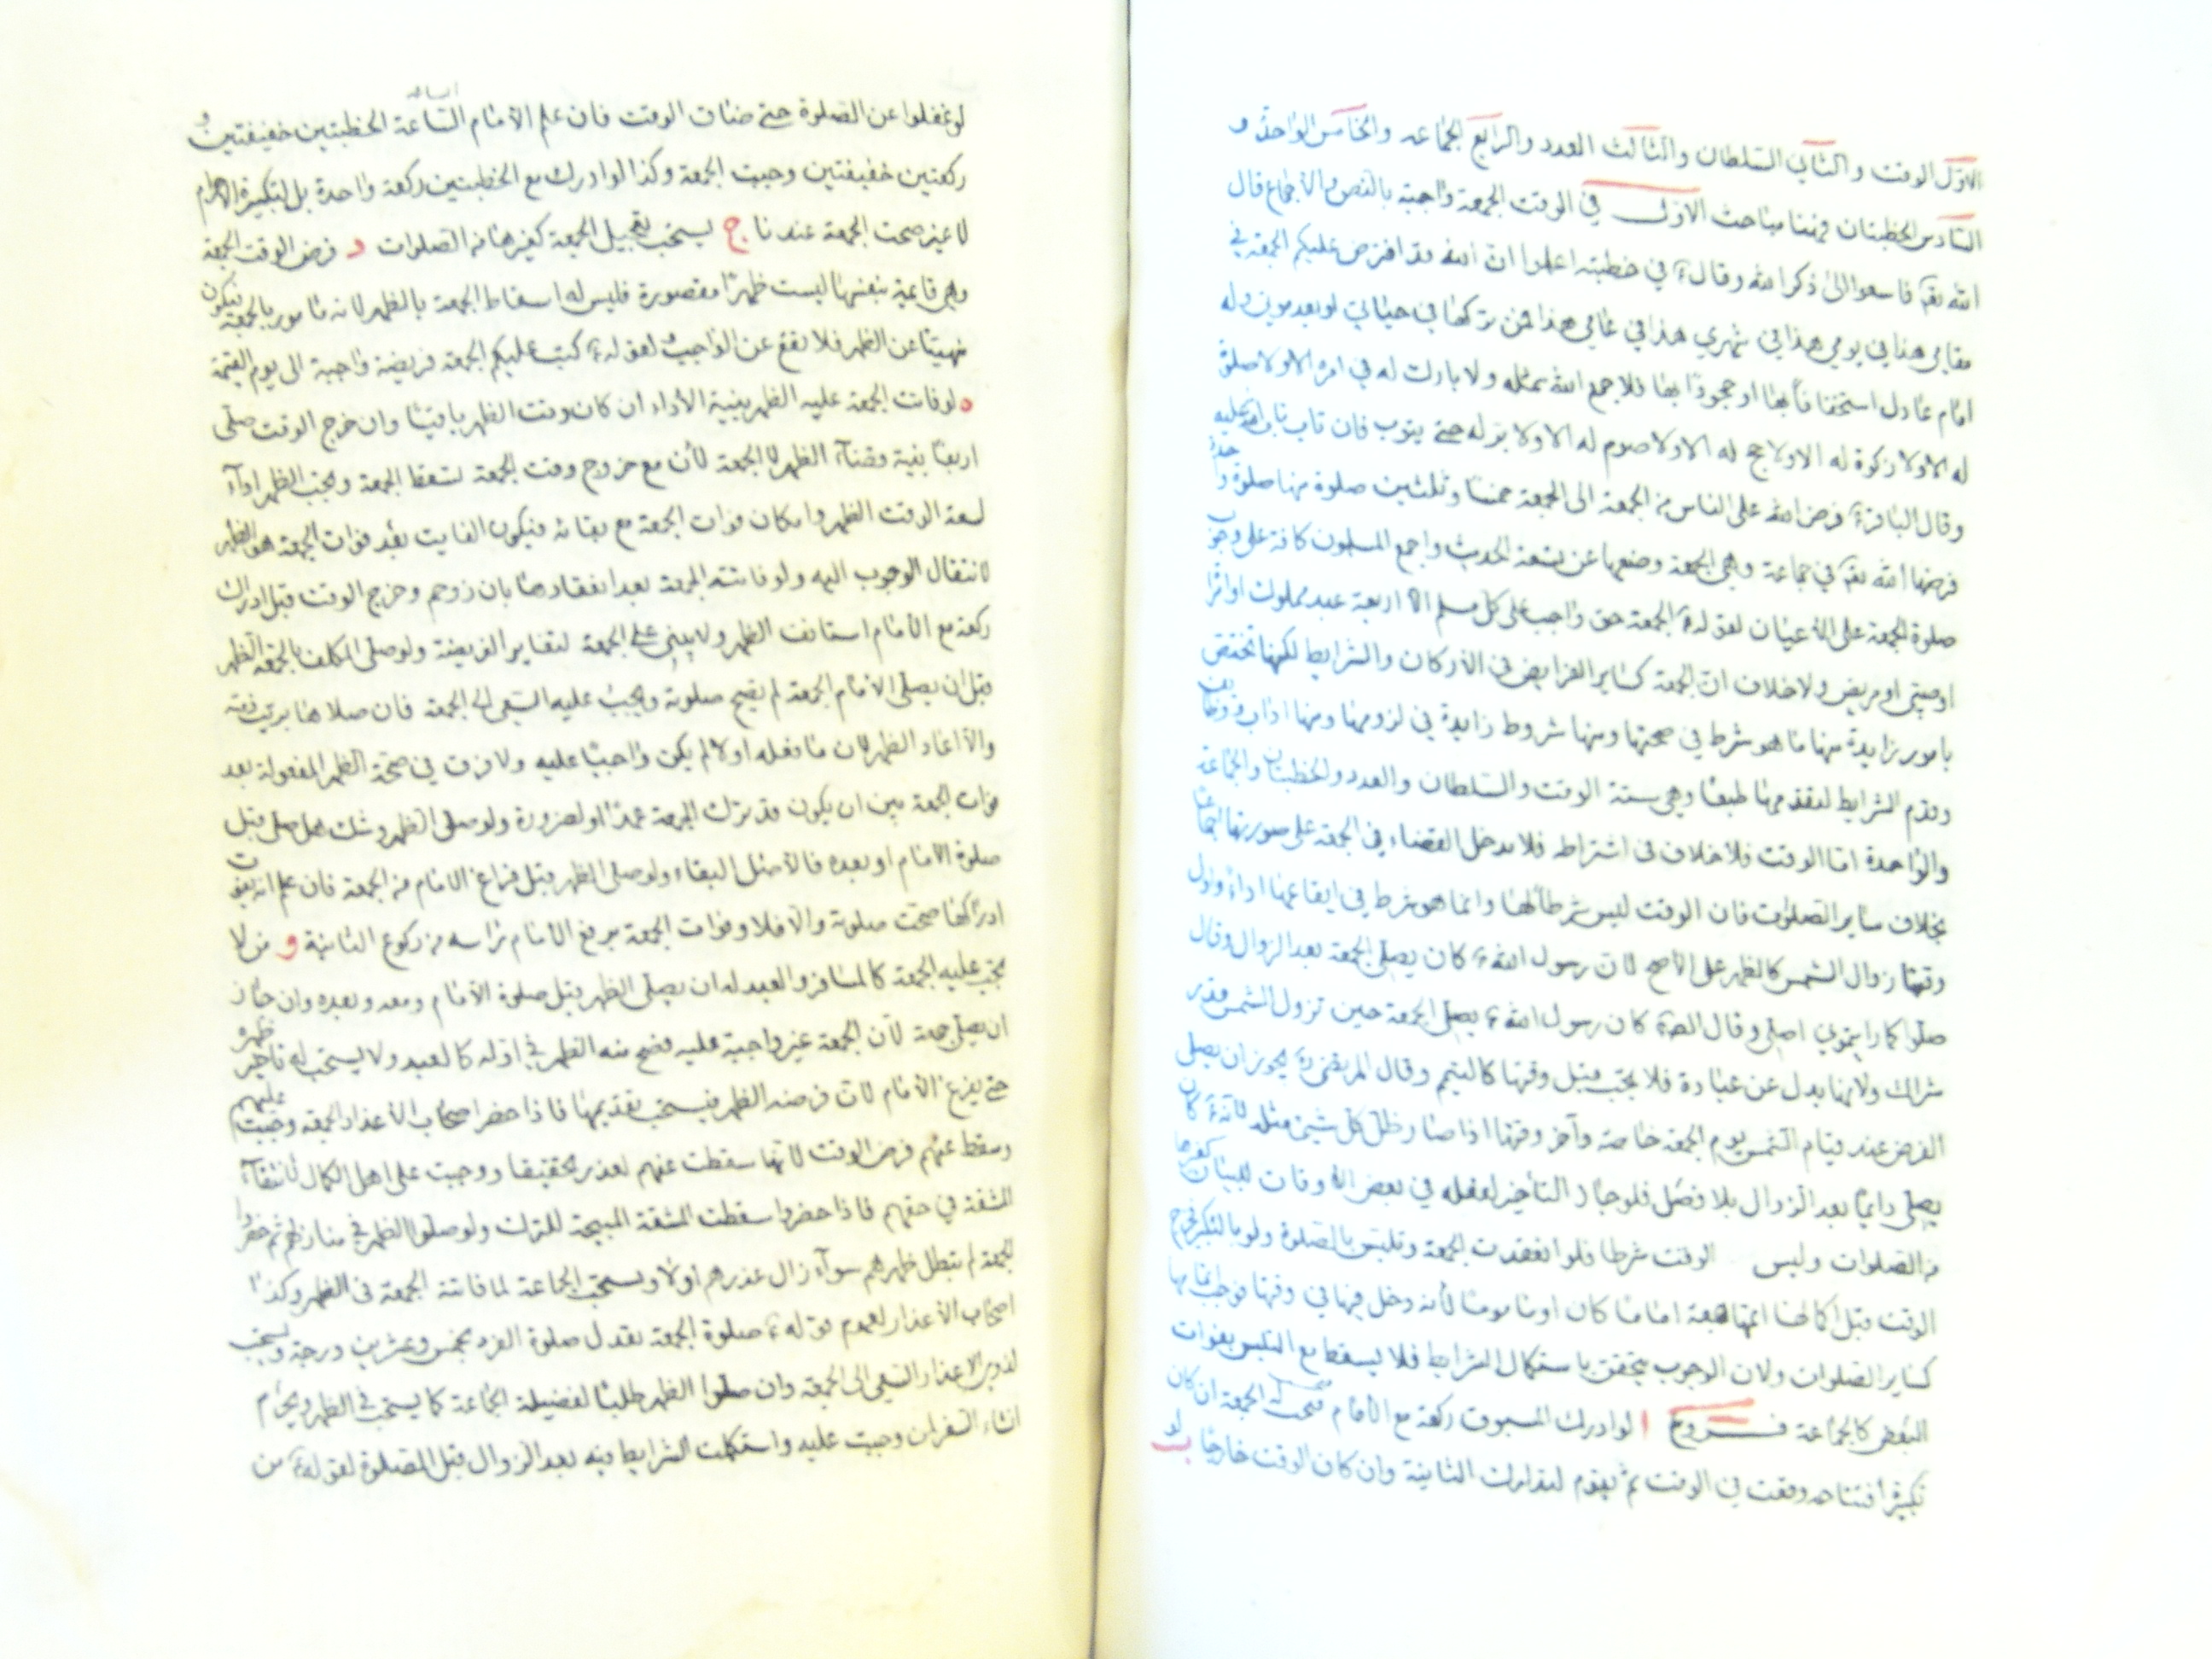 الاول الوقت والثاني السلطان والثالث العدد والرابع الجماعه والخامس الواحدة و
السادس الخطبتان فهنا مباحث الاول في الوقت الجمعة واجبة بالنص والاجماع قال
الله تعالى فاسعوا الى ذكر الله وقال ع في خطبته اعلموا ان الله قد افترض عليكم الجمعة في
مقامي هذا في يومي هذا في شهري هذا في عامي هذا فمن تركها في حياتي او بعد موتي وله
امام عادل استخفافا بها او جحودا بها فلا جمع الله شمله ولا بارك له في امره الا ولا صلوة
له الا ولا زكوة له الا ولا حج له الا ولا صوم له الا ولا بر له حتى يتوب فان تاب تاب الله عليه
وقال الباقر ع فرض الله على الناس من الجمعة الى الجمعة خمسا وثلثين صلوة منها صلوة واحدة
فرضها الله تعالى في جماعة وهي الجمعة وضعها عن تسعة الحديث واجمع المسلمون كافة على وجوب
صلوة الجمعة على الاعيان لقوله ع الجمعة حق واجب على كل مسلم الا اربعة عبد مملوك او امراة
او صبي او مريض ولا خلاف ان الجمعة كساير الفرايض في الاركان والشرايط لكنها تختص
بامور زايدة منها ما هو شرط في صحتها ومنها شروط زايدة في لزومها ومنها اداب ووظايف
وقدم الشرايط لتقدمها طبعا وهي ستة الوقت والسلطان والعدد والخطبتان والجماعة
والواحدة اما الوقت فلا خلاف في اشتراطه فلا مدخل القضاء في الجمعة على صورتها اجماعا
بخلاف ساير الصلوات فان الوقت ليس شرطا لها وانما هو شرط في ايقاعها اداء واول
وقتها زوال الشمس كالظهر على الاصح لان رسول الله ع كان يصلي الجمعة بعد الزوال وقال
صلوا كما رايتموني اصلي وقال الص ع كان رسول الله ع يصلي الجمعة حين تزول الشمس قدر
شراك ولانها بدل عن عبادة فلا يجب قبل وقتها كالتيمم وقال المرتضى ره يجوز ان يصلي
الفرض عند قيام الشمس يوم الجمعة خاصة وآخر وقتها اذا صار ظل كل شيئ مثله لانه ع كان
يصلي دايما بعد الزوال بلا فصل فلو جاز التأخير لفعله في بعض الاوقات للبيان كغيرها
من الصلوات وليس الوقت شرطا فلو انعقدت الجمعة وتلبس بالصلوة ولو بالتكبير فخرج
الوقت قبل اكمالها اتمها جمعة اماما كان او ماموما لأنه دخل فيها في وقتها فوجب اتمامها
كساير الصلوات ولان الوجوب يتحقق باستكمال الشرايط فلا يسقط مع التلبس بفوات
البعض كالجماعة فروع ا لو ادرك المسبوق ركعة مع الأمام صحت له الجمعة ان كان
تكبيرة افتتاحه وقعت في الوقت ثم يقوم لتدارك الثانية وان كان الوقت خارجا ب لو
لو غفلوا عن الصلوة حتى ضاق الوقت فان علم الامام الساعة الخطبتين خفيفتين و
ركعتين خفيفتين وجبت الجمعة وكذا لو ادرك مع الخطبتين ركعة واحدة بل لتكبيرة الاحرام
لا غير صحت الجمعة عندنا ج يستحب تعجيل الجمعة كغيرها من الصلوات د فرض الوقت الجمعة
وهي قايمة بنفسها ليست ظهرا مقصورة فليس له اسقاط الجمعة بالظهر لانه مامور بالجمعة فيكون
منهيا عن الظهر فلا يقع عن الواجب لقوله ع كتب عليكم الجمعة فريضة واجبة الى يوم القيمة
ه لو فاتت الجمعة عليه الظهر بنية الأداء ان كان وقت الظهر باقيا وان خرج الوقت صلى
اربعا بنية قضاء الظهر لا الجمعة لأن مع خروج وقت الجمعة تسقط الجمعة ويجب الظهر اداء
لسعة الوقت الظهر وامكان فوات الجمعة مع بقائه فيكون الفايت بعد فوات الجمعة هو الظهر
لانتقال الوجوب اليه ولو فاتته الجمعة بعد انعقادها بان زوحم وخرج الوقت قبل ادراك
ركعة مع الامام استانف الظهر ولا يبني على الجمعة لتغاير الفريضة ولو صلى المكلف بالجمعة الظهر
قبل ان يصلي الامام الجمعة لم يصح صلوته ويجب عليه السعي الى الجمعة فان صلاها برئت ذمته
والا اعاد الظهر لان ما فعله اولا لم يكن واجبا عليه ولا فرق في صحة الظهر المفعولة بعد
فوات الجمعة بين ان يكون قد ترك الجمعة عمدا او لضرورة ولو صلى الظهر وشك هل صلى قبل
صلوة الامام او بعده فالاصل البقاء ولو صلى الظهر قبل فراغ الامام من الجمعة فان علم انه يفوت
ادراكها صحت صلوته والا فلا وفوات الجمعة برفع الامام راسه من ركوع الثانية و من لا
يجب عليه الجمعة كالمسافر والعبد له ان يصلي الظهر قبل صلوة الأمام ومعه وبعده وان جاز
ان يصلي جمعة لأن الجمعة غير واجبة عليه فصح منه الظهر في اوله كالعبد ولا يستحب له تاخير ظهره
حتى يفرغ الأمام لان فرضه الظهر فيستحب تقديمها فاذا حضر اصحاب الأعذار الجمعه وجبت عليهم
وسقط عنهم فرض الوقت لانها سقطت عنهم لعذر تخفيفا ووجبت على اهل الكمال لانتفاء
المشقة في حقهم فاذا حضروا سقطت المشقة المبيحة للترك ولو صلوا الظهر في منازلهم ثم حضروا
الجمعة لم تبطل ظهرهم سواء زال عذرهم اولا ويستحب الجماعة لمن فاتته الجمعة في الظهر وكذا
اصحاب الأعذار لعموم قوله ع صلوة الجمعة تعدل صلوة الفرد بخمس وعشرين درجة ويستحب
لذوي الاعذار السعي الى الجمعة وان صلوا الظهر طلبا لفضيلة الجماعة كما يستحب في الظهر ويحرم
انشاء السفر لمن وجبت عليه واستكملت الشرايط فيه بعد الزوال قبل الصلوة لقوله ع من